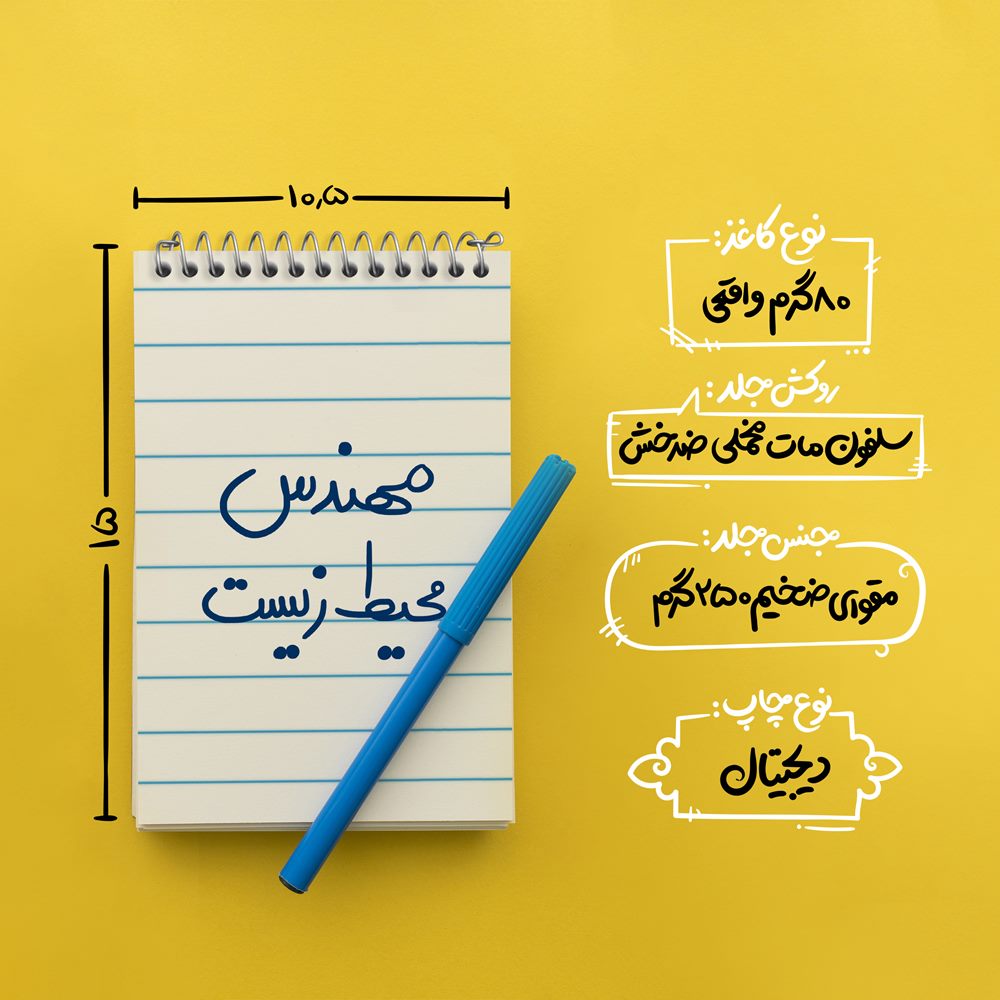 ۱۰,۵
۱۵
مهندس
محیط زیست
نوع کاغذ:
۸۰گرم واقعی
روکش جلد:
سلفون مات مخملی ضدخش
جنس جلد:
مقوای ضخیم ۲۵۰گرم
نوع چاپ:
دیجیتال